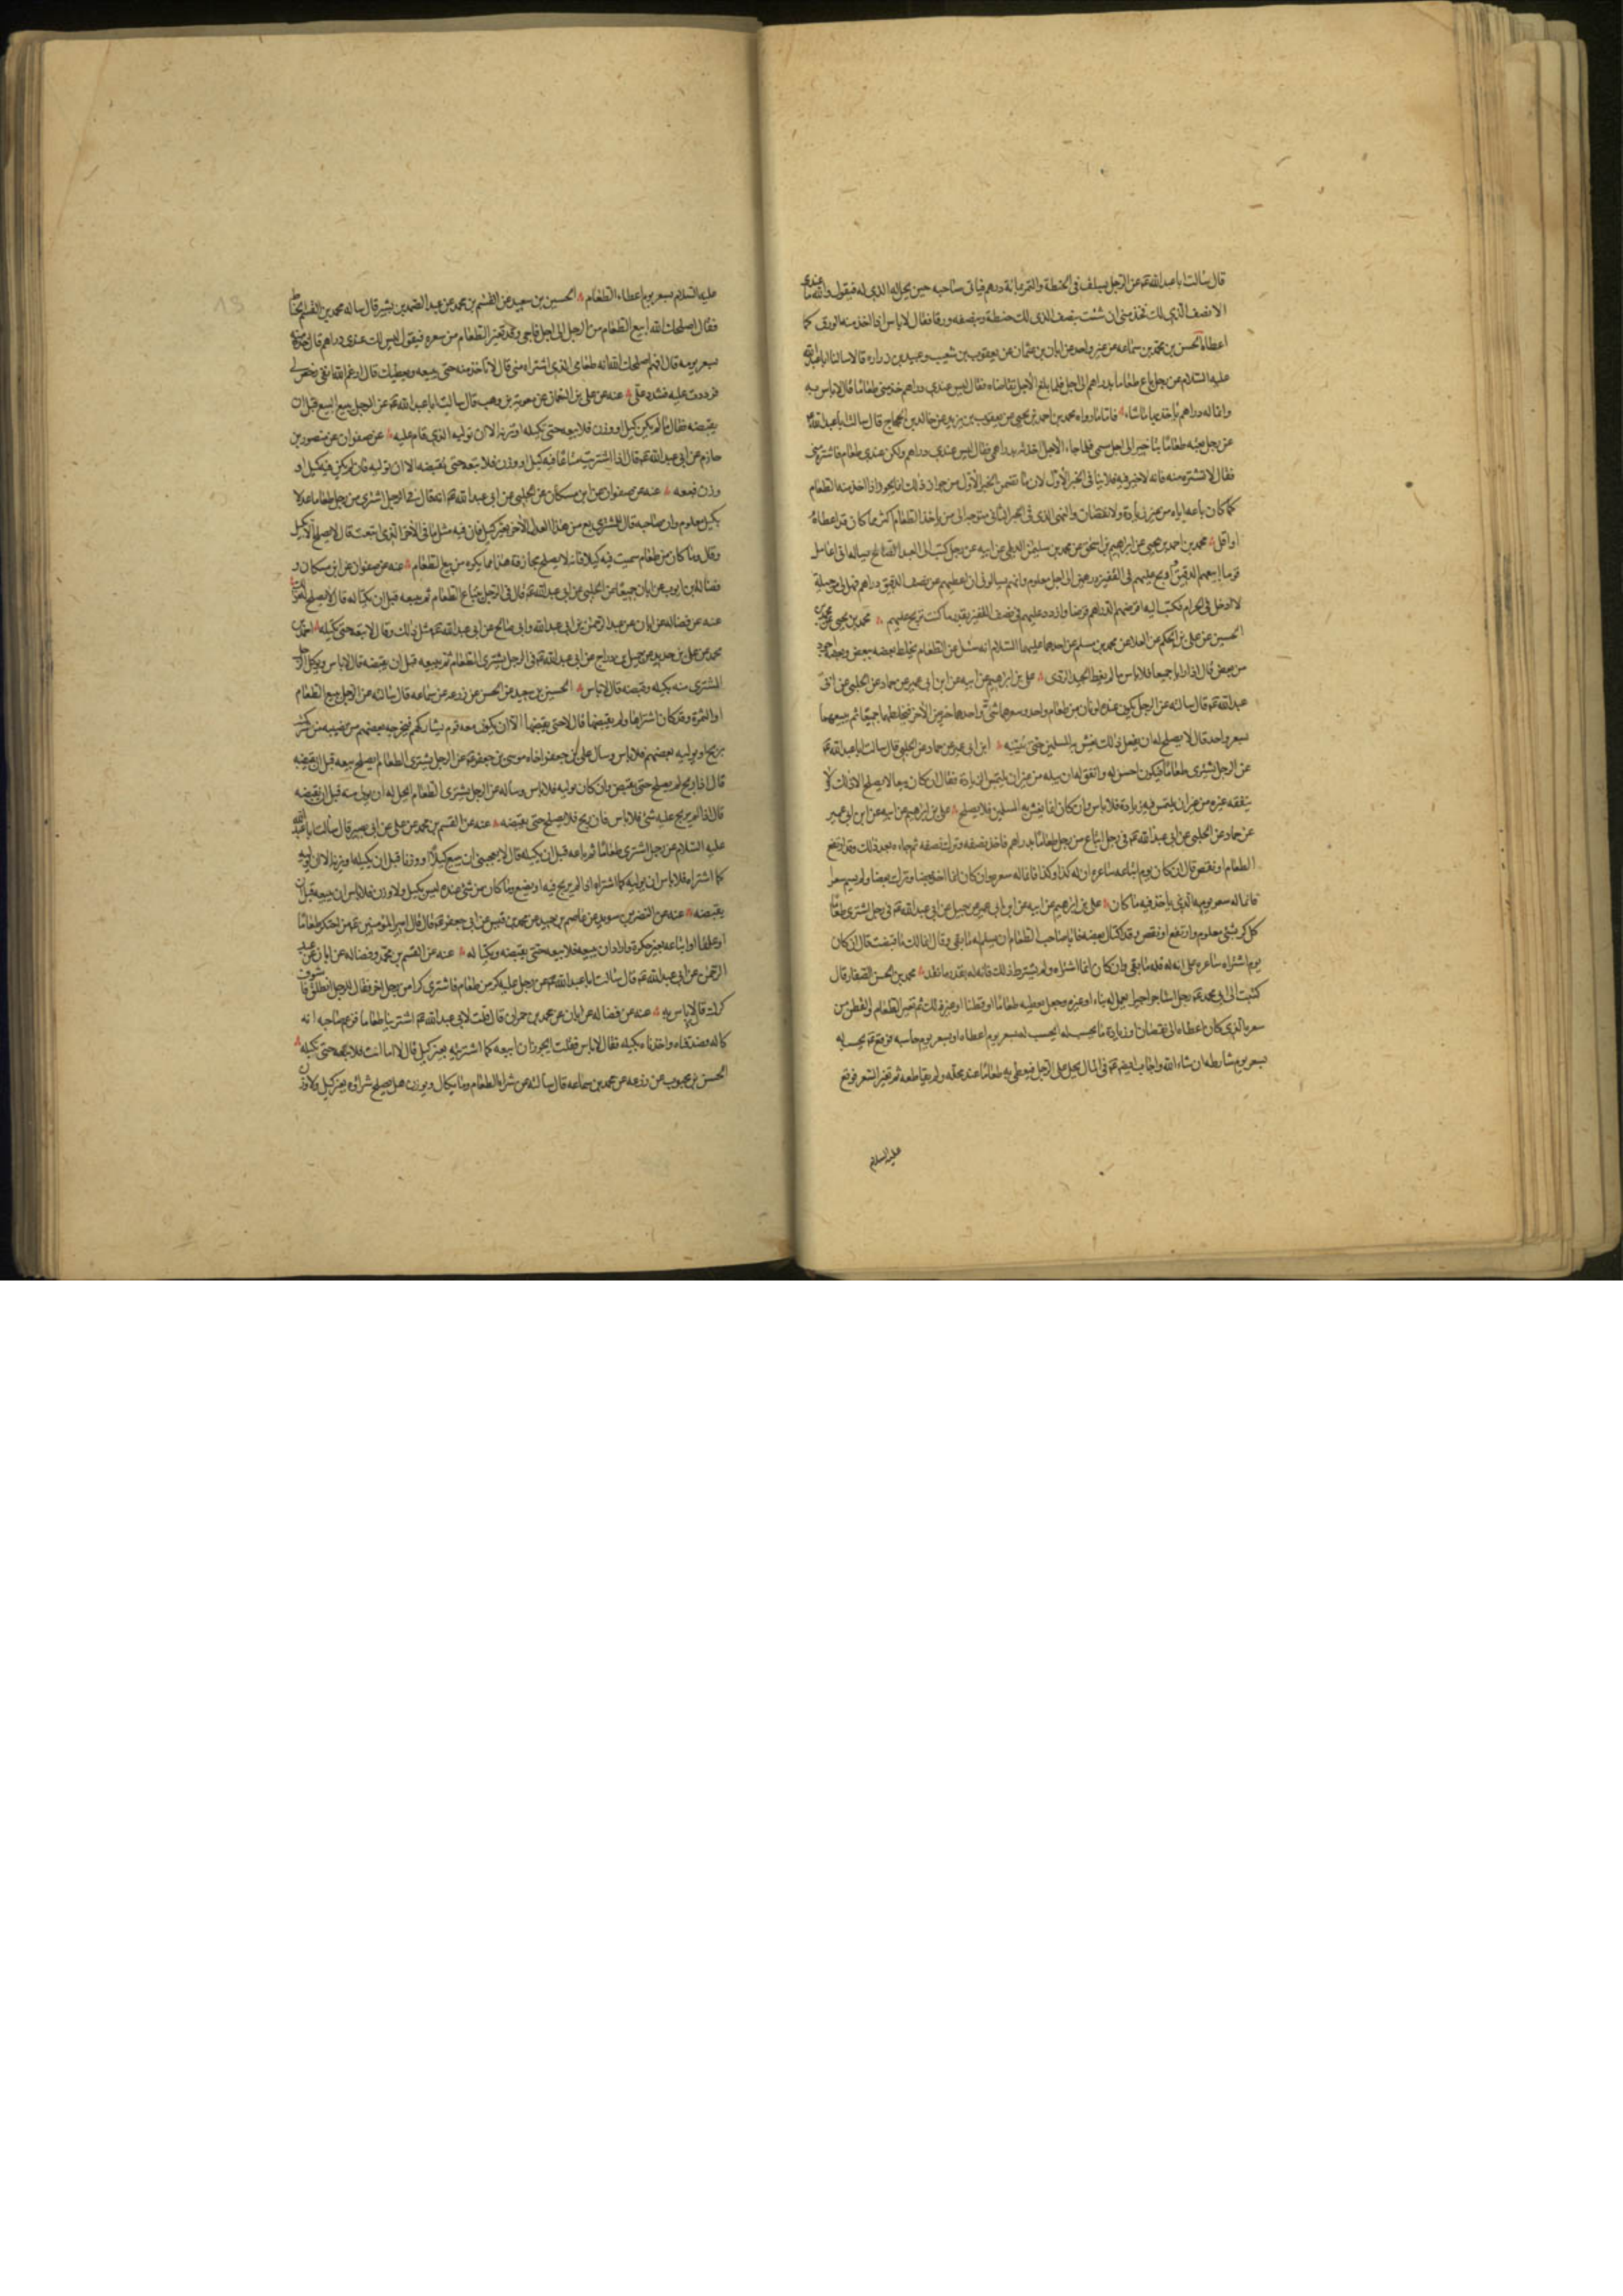 قال سالت اباعبدالله عم عن الرجل يسلف فى الحنطة والتمر بمائة درهم فياتى صاحبه حين يحل له الذى له فيقول والله ما عندى
الا نصف الذى لك فخذ منى ان شئت بنصف الذى لك حنطة وبنصفه ورقا فقال لا باس اذا اخذ منه الورق كما
اعطاه الحسن بن محمد بن سماعه عن غير واحد عن ابان بن عثمان عن يعقوب بن شعيب وعبيد بن زراره قالا سالنا اباعبدالله
عليه السلام عن رجل باع طعاما بدراهم الى اجل فلما بلغ الاجل تقاضاه فقال ليس عندى دراهم خذ منى طعاما قال لا باس به
وانما له دراهم ياخذ بها ما شاء فاما ما رواه محمد بن احمد بن يحيى عن يعقوب بن يزيد عن خالد بن الحجاج قال سالت اباعبدالله عم
عن رجل بعته طعاما بتاخير الى اجل مسمى فلما جاء الاجل اخذته بدراهمى فقال ليس عندى دراهم ولكن عندى طعام فاشتره منى
فقال لا تشتره منه فانه لا خير فيه فلا ينافى الخبر الاول لان ما تضمن الخبر الاول من جواز ذلك انما يجوز اذا اخذ منه الطعام
كما كان باعه اياه من غير زيادة ولا نقصان والنهى الذى فى الخبر الثانى متوجه الى من ياخذ الطعام اكثر مما كان قد اعطاه
او اقل محمد بن احمد بن يحيى عن ابراهيم بن اسحق عن محمد بن سليمن الديلمى عن ابيه عن رجل كتب الى العبد الصالح يساله انى اعامل
قوما ابيعهم الدقيق اربح عليهم فى القفيز درهمين الى اجل معلوم وانهم يسالونى ان اعطيهم عن نصف الدقيق دراهم فهل لى حيلة
لا ادخل فى الحرام فكتب اليه اقرضهم الدراهم قرضا وازدد عليهم فى نصف القفيز بقدر ما كنت تربح عليهم محمد بن يحيى عن محمد بن
الحسين عن على بن الحكم عن العلا عن محمد بن مسلم عن احدهما عليهما السلام انه سئل عن الطعام يخلط بعضه ببعض وبعضه اجود
من بعض قال اذا رايا جميعا فلا باس ما لم يغط الجيد الردى على بن ابراهيم عن ابيه عن ابن ابى عمير عن حماد عن الحلبى عن ابى
عبدالله عم قال سالته عن الرجل يكون عنده لونان من طعام واحد وسعرهما شتى واحدهما خير من الاخر فيخلطهما جميعا ثم يبيعهما
بسعر واحد قال لا يصلح له ان يفعل ذلك يغش به المسلمين حتى يبينه ابن ابى عمير عن حماد عن الحلبى قال سالت اباعبدالله عم
عن الرجل يشترى طعاما فيكون احسن له وانفق له ان يبله من غير ان يلتمس الزيادة فقال ان كان بيعا لا يصلح الا ذلك ولا
ينفقه غيره من غير ان يلتمس فيه زيادة فلا باس وان كان انما يغش به المسلمين فلا يصلح على بن ابراهيم عن ابيه عن ابن ابى عمير
عن حماد عن الحلبى عن ابى عبدالله عم فى رجل ابتاع من رجل طعاما بدراهم فاخذ نصفه وترك نصفه ثم جاءه بعد ذلك وقد ارتفع
الطعام او نقص قال ان كان يوم ابتاعه ساعره ان له كذا وكذا فانما له سعره وان كان انما اخذ بعضا وترك بعضا ولم يسم سعرا
فانما له سعر يومه الذى ياخذ فيه ما كان على بن ابراهيم عن ابيه عن ابن ابى عمير عن جميل عن ابى عبدالله عم فى رجل اشترى طعاما
كل كر بشئ معلوم وارتفع او نقص وقد اكتال بعضه فابى صاحب الطعام ان يسلم له ما بقى وقال انما لك ما قبضت قال ان كان
يوم اشتراه ساعره على انه له فله ما بقى وان كان انما اشتراه ولم يشترط ذلك فانه له بقدر ما نقد محمد بن الحسن الصفار قال
كتبت الى ابى محمد عم رجل استاجر اجيرا يعمل له بناء او غيره وجعل يعطيه طعاما او قطنا او غير ذلك ثم تغير الطعام والقطن من
سعره الذى كان اعطاه الى نقصان او زيادة ايحتسب له بسعر يوم اعطاه او بسعر يوم حاسبه فوقع عم يحتسب له
بسعر يوم شارطه ان شاء الله واجاب ايضا عم فى المال يحل على الرجل فيعطى به طعاما عند محله ولم يقاطعه ثم تغير السعر فوقع
عليه السلام
عليه السلام بسعر يوم اعطاه الطعام الحسين بن سعيد عن القسم بن محمد عن عبد الصمد بن بشير قال ساله محمد بن القسم الحناط
فقال اصلحك الله ابيع الطعام من الرجل الى اجل فاجى وقد تغير الطعام من سعره فيقول ليس لك عندى دراهم قال خذ منه
بسعر يومه قال افهم اصلحك الله انه طعامى الذى اشتراه منى قال لا تاخذ منه حتى يبيعه ويعطيك قال ارغم الله انفى رخص لى
فرددت عليه فشدد على عنه عن على بن النعمان عن معوية بن وهب قال سالت اباعبدالله عم عن الرجل يبيع البيع قبل ان
يقبضه فقال ما لم يكن كيل او وزن فلا تبعه حتى تكيله او تزنه الا ان توليه الذى قام عليه عن صفوان عن منصور بن
حازم عن ابى عبدالله عم قال اذا اشتريت متاعا فيه كيل او وزن فلا تبعه حتى تقبضه الا ان توليه فان لم يكن فيه كيل او
وزن فبعه عنه عن صفوان عن ابن مسكان عن الحلبى عن ابى عبدالله عم انه قال فى الرجل اشترى من رجل طعاما عدلا
بكيل معلوم وان صاحبه قال للمشترى بع من هذا العدل الاخر بغير كيل فان فيه مثل ما فى الاخر الذى ابتعت قال لا يصلح الا بكيل
وقال وما كان من طعام سميت فيه كيلا فانه لا يصلح مجازفة هذا مما يكره من بيع الطعام عنه عن صفوان عن ابن مسكان و
فضالة بن ايوب عن ابان جميعا عن الحلبى عن ابى عبدالله عم قال فى الرجل يبتاع الطعام ثم يبيعه قبل ان يكتاله قال لا يصلح له ذلك
عنه عن فضاله عن ابان عن عبد الرحمن بن ابى عبدالله وابى صالح عن ابى عبدالله عم مثل ذلك وقال لا تبعه حتى تكيله احمد بن
محمد عن على بن حديد عن جميل بن دراج عن ابى عبدالله عم فى الرجل يشترى الطعام ثم يبيعه قبل ان يقبضه قال لا باس ويوكل الرجل
المشترى منه بكيله وقبضه قال لا باس الحسين بن سعيد عن الحسن عن زرعه عن سماعه قال سالته عن الرجل يبيع الطعام
او الثمرة وقد كان اشتراها ولم يقبضها قال لا حتى يقبضها الا ان يكون معه قوم يشاركهم فيخرجه بعضهم من نصيبه من شركته
بربح او يوليه بعضهم فلا باس وسال على بن جعفر اخاه موسى بن جعفر عم عن الرجل يشترى الطعام ايصلح بيعه قبل ان يقبضه
قال اذا ربح لم يصلح حتى يقبض وان كان يوليه فلا باس وساله عن الرجل يشترى الطعام ايحل له ان يولى منه قبل ان يقبضه
قال اذا لم يربح عليه شئ فلا باس فان ربح فلا يصلح حتى يقبضه عنه عن القسم بن محمد عن على عن ابى بصير قال سالت اباعبدالله
عليه السلام عن رجل اشترى طعاما ثم باعه قبل ان يكيله قال لا يعجبنى ان يبيع كيلا او وزنا قبل ان يكيله او يزنه الا ان يوليه
كما اشتراه فلا باس ان يوليه كما اشتراه اذا لم يربح فيه او يضع وما كان من شئ عنده ليس بكيل ولا وزن فلا باس ان يبيعه قبل ان
يقبضه عنه عن النضر بن سويد عن عاصم بن حميد عن محمد بن قيس عن ابى جعفر عم قال قال امير المؤمنين عم من احتكر طعاما
او علفا او ابتاعه بغير حكرة واراد ان يبيعه فلا يبيعه حتى يقبضه ويكتاله عنه عن القسم بن محمد وفضاله عن ابان عن عبد
الرحمن عن ابى عبدالله عم قال سالت اباعبدالله عم عن رجل عليه كر من طعام فاشترى كرا من رجل اخر فقال للرجل انطلق فاستوف
كرك قال لا باس به عنه عن فضاله عن ابان عن محمد بن حمران قال قلت لابى عبدالله عم اشترينا طعاما فزعم صاحبه انه
كاله فصدقناه واخذناه بكيله فقال لا باس فقلت ايجوز ان ابيعه كما اشتريته بغير كيل قال لا اما انت فلا تبعه حتى تكيله
الحسن بن محبوب عن زرعه عن محمد بن سماعه قال سالته عن شراء الطعام وما يكال ويوزن هل يصلح شراؤه بغير كيل ولا وزن